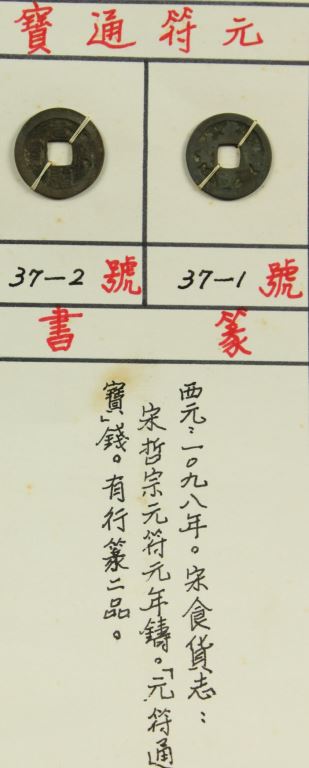 元符通寶
37-1 號
37-2 號
篆書
西元：一〇九八年。宋食貨志：
宋哲宗元符元年鑄。「元符通
寶」錢。有行篆二品。